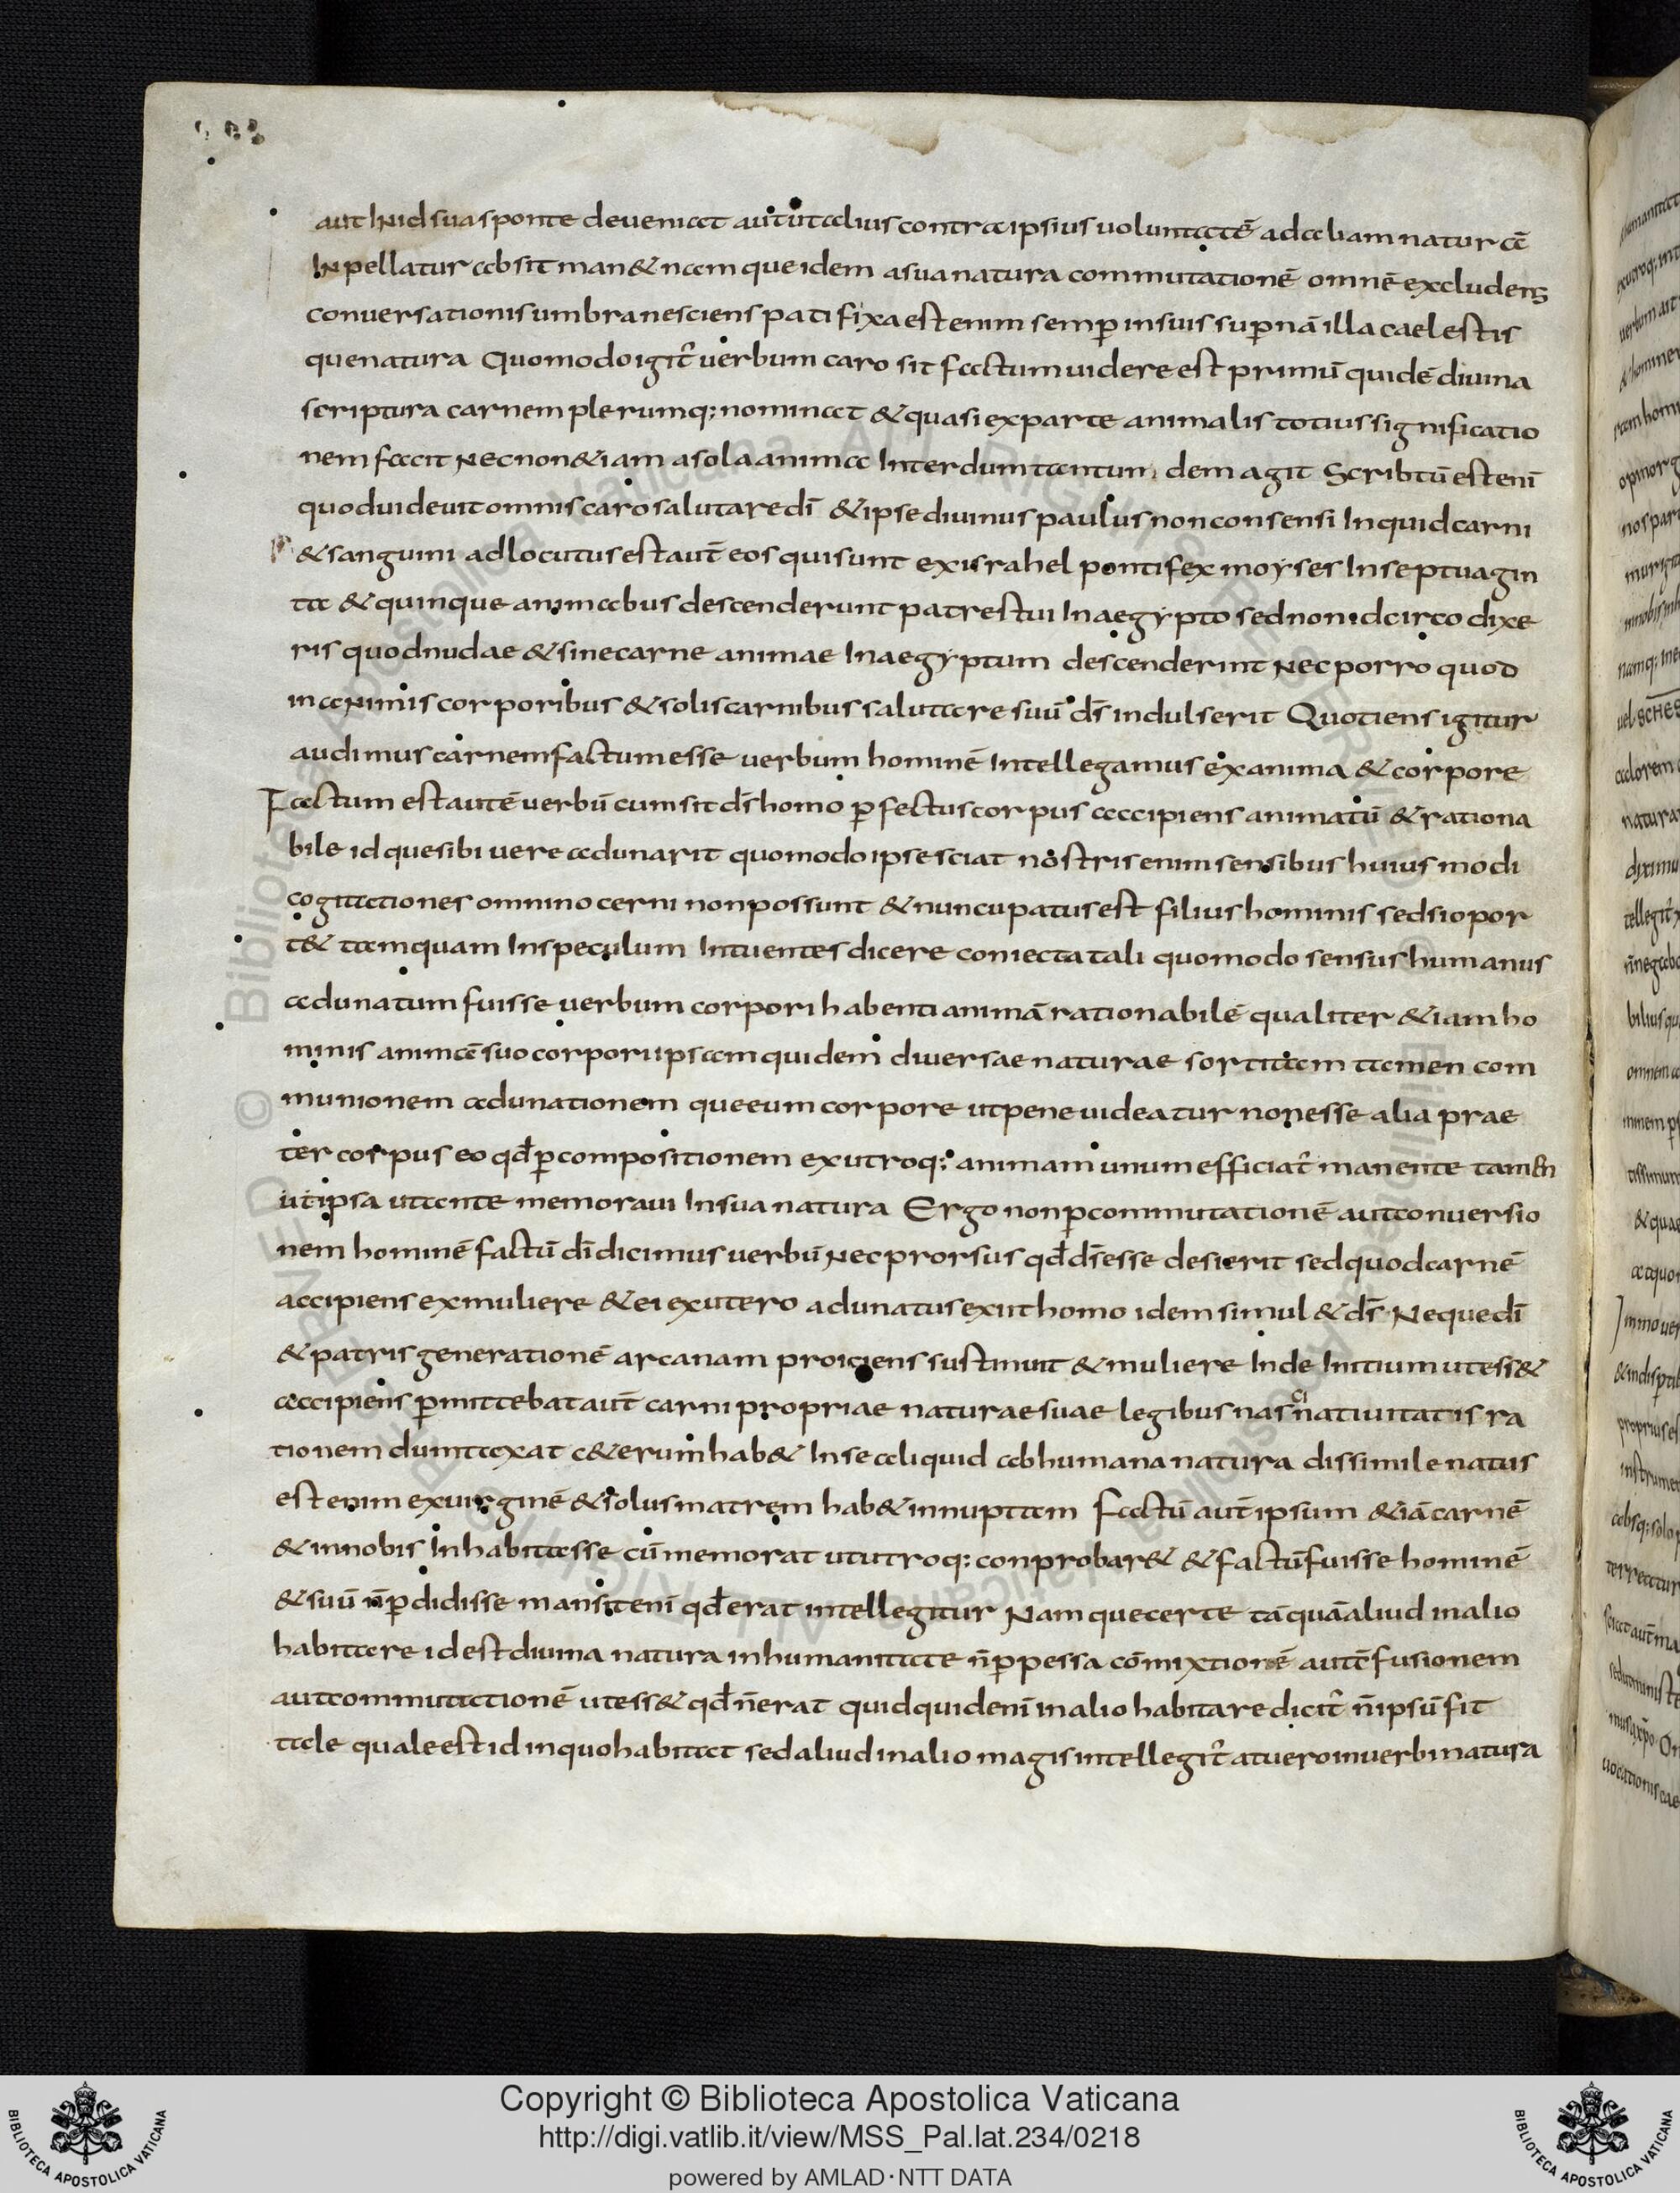 aut INid sua sponte deveniat aut ut alius contra ipsius voluntatē ad aliam naturā
INpellatur absit man& namque idem a sua natura commutationē omnē excludens
conversationis umbra nesciens pati fixa est enim semp in suis supnā illa caelestis
que natura Quomodo igit̄ verbum caro sit factum videre est primū quidē divina
scriptura carnem plerumq; nominat & quasi ex parte animalis totius significatio
nem facit Nec non &iam a sola anima Interdum tantundem agit Scribtū est enī
quod videvit omnis caro salutare dī & ipse divinus paulus non consensi Inquid carni
& sanguini adlocutus est aut̄ eos qui sunt ex israhel pontifex moyses In septuagin
ta & quinque animabus descenderunt patres tui In aegypto sed non idcirco dixe
ris quod nudae & sine carne animae In aegyptum descenderint Nec porro quod
inaNimis corporibus & solis carnibus salutare suū ds̄ indulserit Quotiens igitur
audimus carnem factum esse verbum hominē Intellegamus ex anima & corpore
Factum est autē verbū cum sit ds̄ homo pfectus corpus accipiens animatū & rationa
bile id que sibi vere adunarit quomodo ipse sciat nostris enim sensibus huius modi
cogitationes omnino cerni non possunt & nuncupatus est filius hominis sed si opor
t& tamquam In speculum Intuentes dicere coniecta tali quomodo sensus humanus
adunatum fuisse verbum corpori habenti animā rationabilē qualiter &iam ho
minis animā suo corpori ipsam quidem diversae naturae sortitam tamen com
munionem adunationem que eum corpore ut pene videatur non esse alia prae
ter corpus eo qđ p compositionem ex utroq; animam unum efficiat̄ manente tamen
ut ipsa ut ante memoravi In sua natura Ergo non p commutationē aut conversio
nem hominē factū dī dicimus verbū Nec prorsus qđ ds̄ esse desierit sed quod carnē
accipiens ex muliere & ei ex utero adunatus exiit homo idem simul & ds̄ Neque dī
& patris generationē arcanam proiciens sustinuit & muliere Inde Initium ut ess&
accipiens pmittebat aut̄ carni propriae naturae suae legibus nasci nativitatis ra
tionem dumtaxat c&erum hab& In se aliquid ab humana natura dissimile natus
est enim ex virginē & solus matrem hab& innuptam Factū aut̄ ipsum &iā carnē
& in nobis Inhabitasse cū memorat ut utroq; conprobar& & factū fuisse hominē
& suū n̄ pdidisse mansit enī qđ erat intellegitur Nam que certe tā quā aliud in alio
habitare id est divina natura in humanitate n̄ ppessa cōmixtionē aut cfusionem
aut commutationē ut ess& qđ n̄ erat quid quid enī in alio habitare dicit̄ n̄ ipsū fit
tale quale est id in quo habitat sed aliud in alio magis intellegit̄ at vero in verbi natura
Copyright © Biblioteca Apostolica Vaticana
http://digi.vatlib.it/view/MSS_Pal.lat.234/0218
powered by AMLAD·NTT DATA
BIBLIOTECA APOSTOLICA VATICANA
BIBLIOTECA APOSTOLICA VATICANA